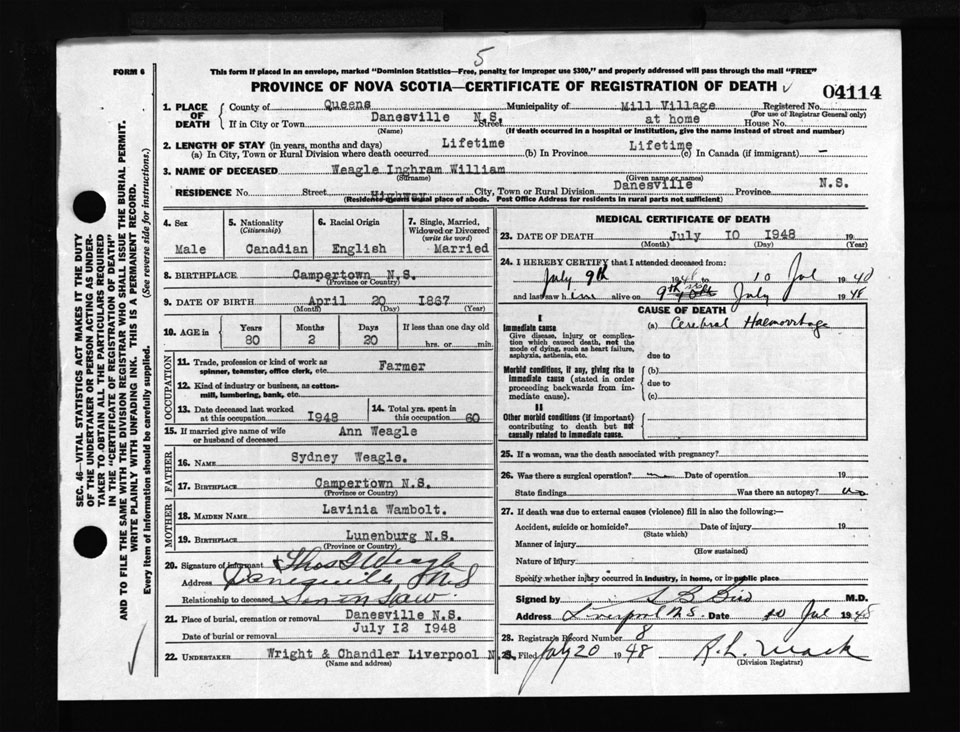 5
FORM 6
This form if placed in an envelope, marked "Dominion Statistics—Free, penalty for improper use $300," and properly addressed will pass through the mail "FREE"
PROVINCE OF NOVA SCOTIA—CERTIFICATE OF REGISTRATION OF DEATH
04114
SEC. 46—VITAL STATISTICS ACT MAKES IT THE DUTY
OF THE UNDERTAKER OR PERSON ACTING AS UNDER-
TAKER TO OBTAIN ALL THE PARTICULARS REQUIRED
IN THE "CERTIFICATE OF REGISTRATION OF DEATH"
AND TO FILE THE SAME WITH THE DIVISION REGISTRAR WHO SHALL ISSUE THE BURIAL PERMIT.
WRITE PLAINLY WITH UNFADING INK. THIS IS A PERMANENT RECORD.
Every item of Information should be carefully supplied. (See reverse side for instructions.)
1. PLACE OF DEATH
County of Queens Municipality of Mill Village Registered No.
(For use of Registrar General only)
If in City or Town Danesville N.S. Street at home House No.
(Name) (If death occurred in a hospital or institution, give the name instead of street and number)
2. LENGTH OF STAY (in years, months and days)
(a) In City, Town or Rural Division where death occurred Lifetime (b) In Province Lifetime (c) In Canada (if immigrant) —
3. NAME OF DECEASED Weagle Inghram William
(Surname) (Given name or names)
RESIDENCE No. Street Highway City, Town or Rural Division Danesville Province N.S.
(Residence means usual place of abode. Post Office Address for residents in rural parts not sufficient)
4. Sex Male
5. Nationality (Citizenship) Canadian
6. Racial Origin English
7. Single, Married, Widowed or Divorced (write the word) Married
8. BIRTHPLACE Campertown N.S.
(Province or Country)
9. DATE OF BIRTH April 20 1867
(Month) (Day) (Year)
10. AGE in Years 80 Months 2 Days 20 If less than one day old hrs. or min.
OCCUPATION
11. Trade, profession or kind of work as spinner, teamster, office clerk, etc. Farmer
12. Kind of industry or business, as cotton-mill, lumbering, bank, etc.
13. Date deceased last worked at this occupation 1948
14. Total yrs. spent in this occupation 60
15. If married give name of wife or husband of deceased Ann Weagle
FATHER
16. NAME Sydney Weagle.
17. BIRTHPLACE Campertown N.S.
(Province or Country)
MOTHER
18. MAIDEN NAME Lavinia Wambolt.
19. BIRTHPLACE Lunenburg N.S.
(Province or Country)
20. Signature of informant Thos G Weagle
Address Danesville N.S
Relationship to deceased Son in Law
21. Place of burial, cremation or removal Danesville N.S.
Date of burial or removal July 12 1948
22. UNDERTAKER Wright & Chandler Liverpool N.S.
(Name and address)
MEDICAL CERTIFICATE OF DEATH
23. DATE OF DEATH July 10 1948 19
(Month) (Day) (Year)
24. I HEREBY CERTIFY that I attended deceased from:
July 9th 1948 to 10 Jul 1948
and last saw him alive on 9th July 1948
CAUSE OF DEATH
I
Immediate cause
Give disease, injury or complication which caused death, not the mode of dying, such as heart failure, asphyxia, asthenia, etc.
(a) Cerebral Haemorrhage
due to
Morbid conditions, if any, giving rise to immediate cause (stated in order proceeding backwards from immediate cause).
(b)
due to
(c)
II
Other morbid conditions (if important) contributing to death but not causally related to immediate cause.
25. If a woman, was the death associated with pregnancy?
26. Was there a surgical operation? Date of operation 19
State findings Was there an autopsy? no
27. If death was due to external causes (violence) fill in also the following:—
Accident, suicide or homicide? Date of injury 19
(State which)
Manner of injury
(How sustained)
Nature of Injury
Specify whether injury occurred in industry, in home, or in public place
Signed by S B Bird M.D.
Address Liverpool N.S. Date 10 Jul 1948
28. Registrar's Record Number 8
Filed July 20 1948 R. L. Mack
(Division Registrar)